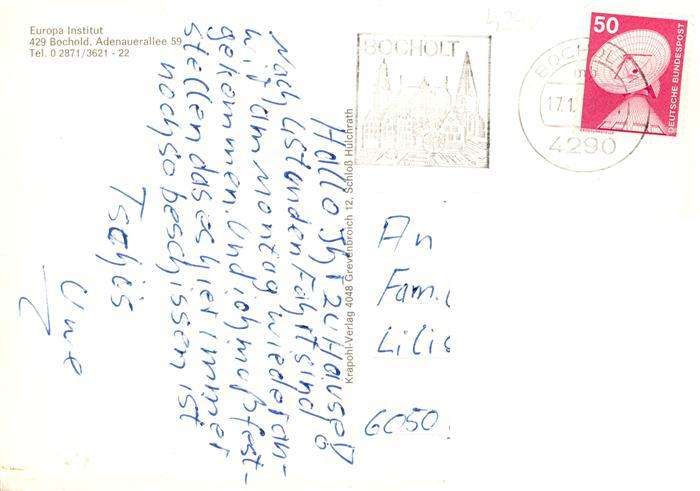 Europa Institut
429 Bochold, Adenauerallee 59
Tel. 0 2871/3621 - 22
BOCHOLT
BOCHOLT
17.1.
4290
50
DEUTSCHE BUNDESPOST
Krapohl-Verlag 4048 Grevenbroich 12, Schloß Hülchrath
Hallo Ihr zu Hause
Nach 6 Standen Fahrt sind
wir am Montag wieder an-
gekommen. Und ich muß fest-
stellen das es hier immer
noch so beschissen ist
Tschüs
Uwe
An
Fam.
Lilis
6050